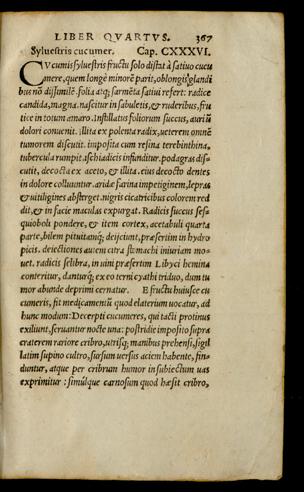 LIBER QVARTVS. 367
Sylueſtris cucumer. Cap. CXXXVI.
CVcumis ſylueſtris fructu ſolo diſtat à ſatiuo cucu
mere, quem longè minorẽ parit, oblongis glandi
bus nõ diſſimilẽ. folia atq; ſarmẽta ſatiui refert: radice
candida, magna. naſcitur in ſabuletis, & ruderibus, fru
tice in totum amaro. Inſtillatus foliorum ſuccus, auriũ
dolori conuenit. illita ex polenta radix, ueterem omnẽ
tumorem diſcutit. impoſita cum reſina terebinthina,
tubercula rumpit. iſchiadicis infunditur. podagras diſ=
cutit, decocta ex aceto, & illita. eius decocto dentes
in dolore colluuntur. aridæ farina impetiginem, lepras
& uitiligines abſterget. nigris cicatricibus colorem red
dit, & in facie maculas expurgat. Radicis ſuccus ſeſ=
quioboli pondere, & item cortex, acetabuli quarta
parte, bilem pituitamq; deijciunt, præſertim in hydro
picis. deiectiones autem citra ſtomachi iniuriam mo=
uet. radicis ſelibra, in uini præſertim Libyci hemina
conteritur, danturq; ex eo terni cyathi triduo, dum tu
mor abunde deprimi cernatur. E fructu huiuſce cu
cumeris, fit medicamentũ quod elaterium uocatur, ad
hunc modum: Decerpti cucumeres, qui tactu protinus
exiliunt, ſeruantur nocte una: poſtridie impoſito ſupra
craterem rariore cribro, utriſq; manibus prehenſi, ſigil
latim ſupino cultro, ſurſum uerſus aciem habente, fin=
duntur, atque per cribrum humor in ſubiectum uas
exprimitur: ſimulque carnoſum quod hæſit cribro,